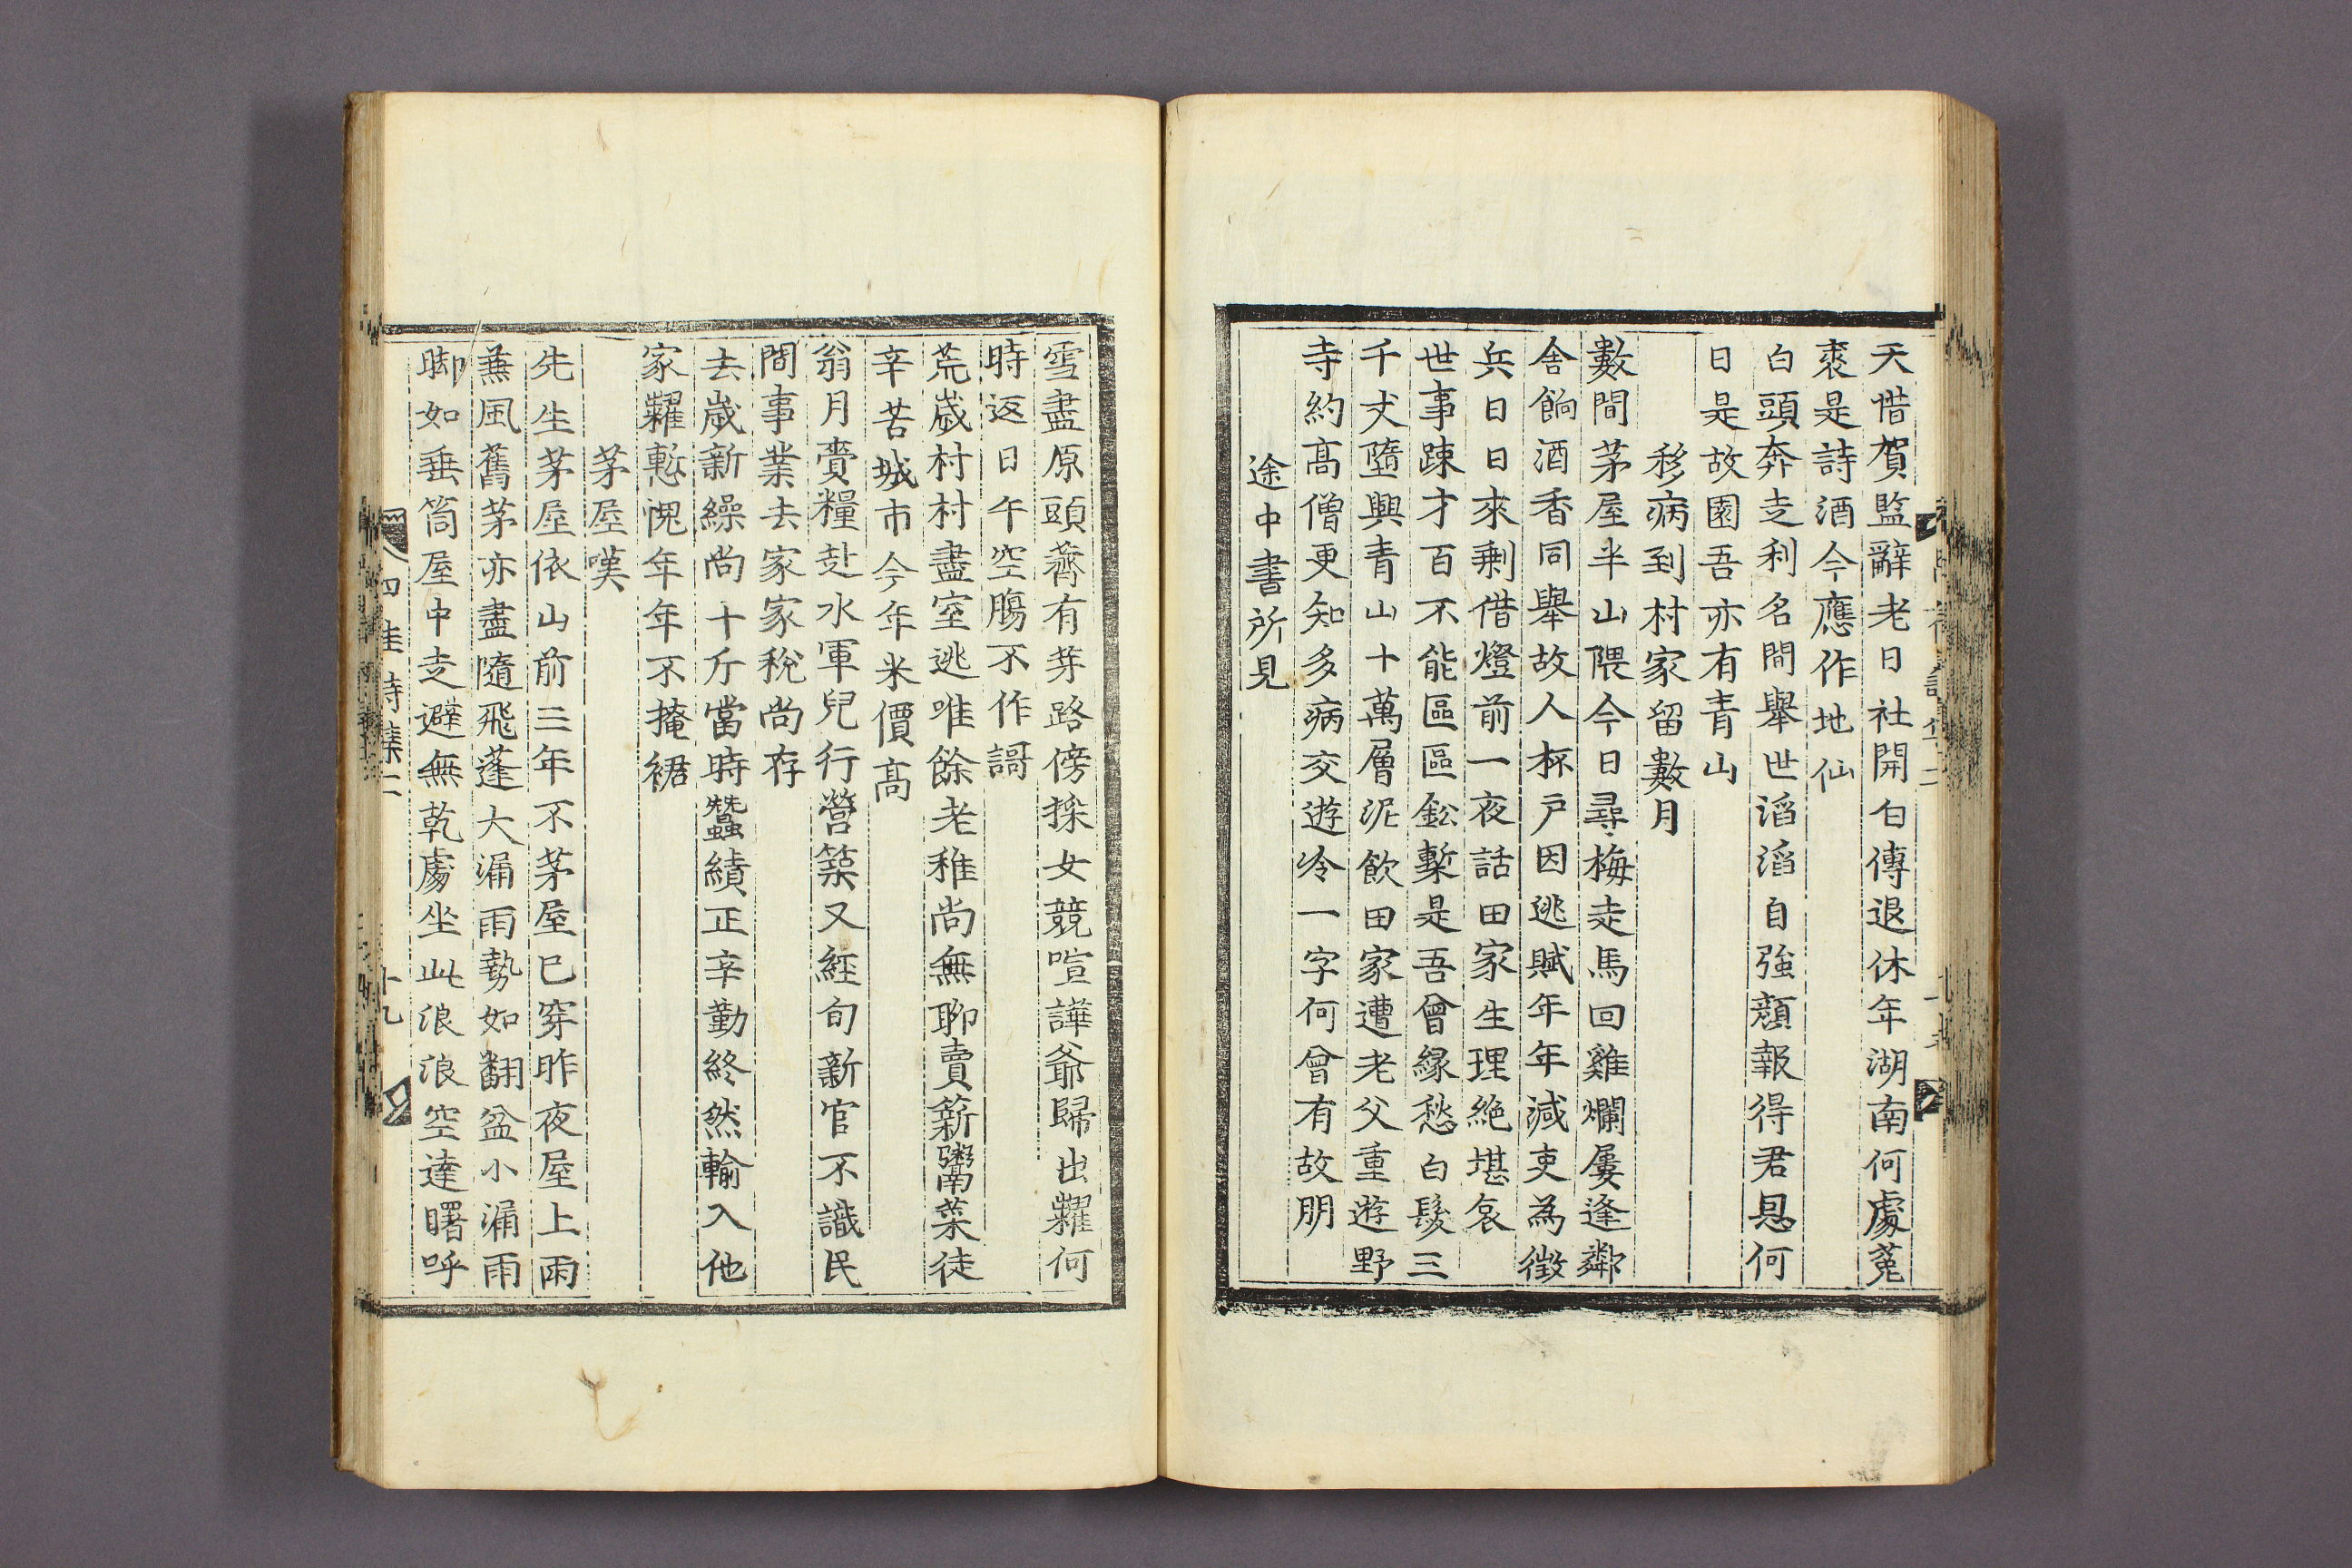 天惜賀監辭老日社開白傳退休年湖南何處菟
裘是詩酒今應作地仙
白頭奔走利名間舉世滔滔自強顔報得君恩何
日是故園吾亦有青山
移病到村家留數月
數間茅屋半山隈今日尋梅走馬回雞爛屢逢鄰
舍餉酒香同舉故人杯戶因逃賦年年減吏為徵
兵日日來剩借燈前一夜話田家生理絶堪哀
世事踈才百不能區區鈆槧是吾曾緣愁白髮三
千丈隨興青山十萬層泥飲田家遭老父重遊野
寺約高僧更知多病交遊冷一字何曾有故朋
途中書所見
雪盡原頭薺有芽路傍採女競喧譁爺歸出糶何
時返日午空腸不作謌
荒歲村村盡室逃唯餘老稚尚無聊賣薪粥菜徒
辛苦城市今年米價高
翁月賫糧赴水軍兒行營築又經旬新官不識民
間事業去家家稅尚存
去歲新繰尚十斤當時蠶績正辛勤終然輸入他
家糶慙愧年年不掩裙
茅屋嘆
先生茅屋依山前三年不茅屋已穿昨夜屋上雨
兼風舊茅亦盡隨飛蓬大漏雨勢如翻盆小漏雨
脚如垂筒屋中走避無乾處坐此浪浪空達曙呼
四佳詩集二
十九